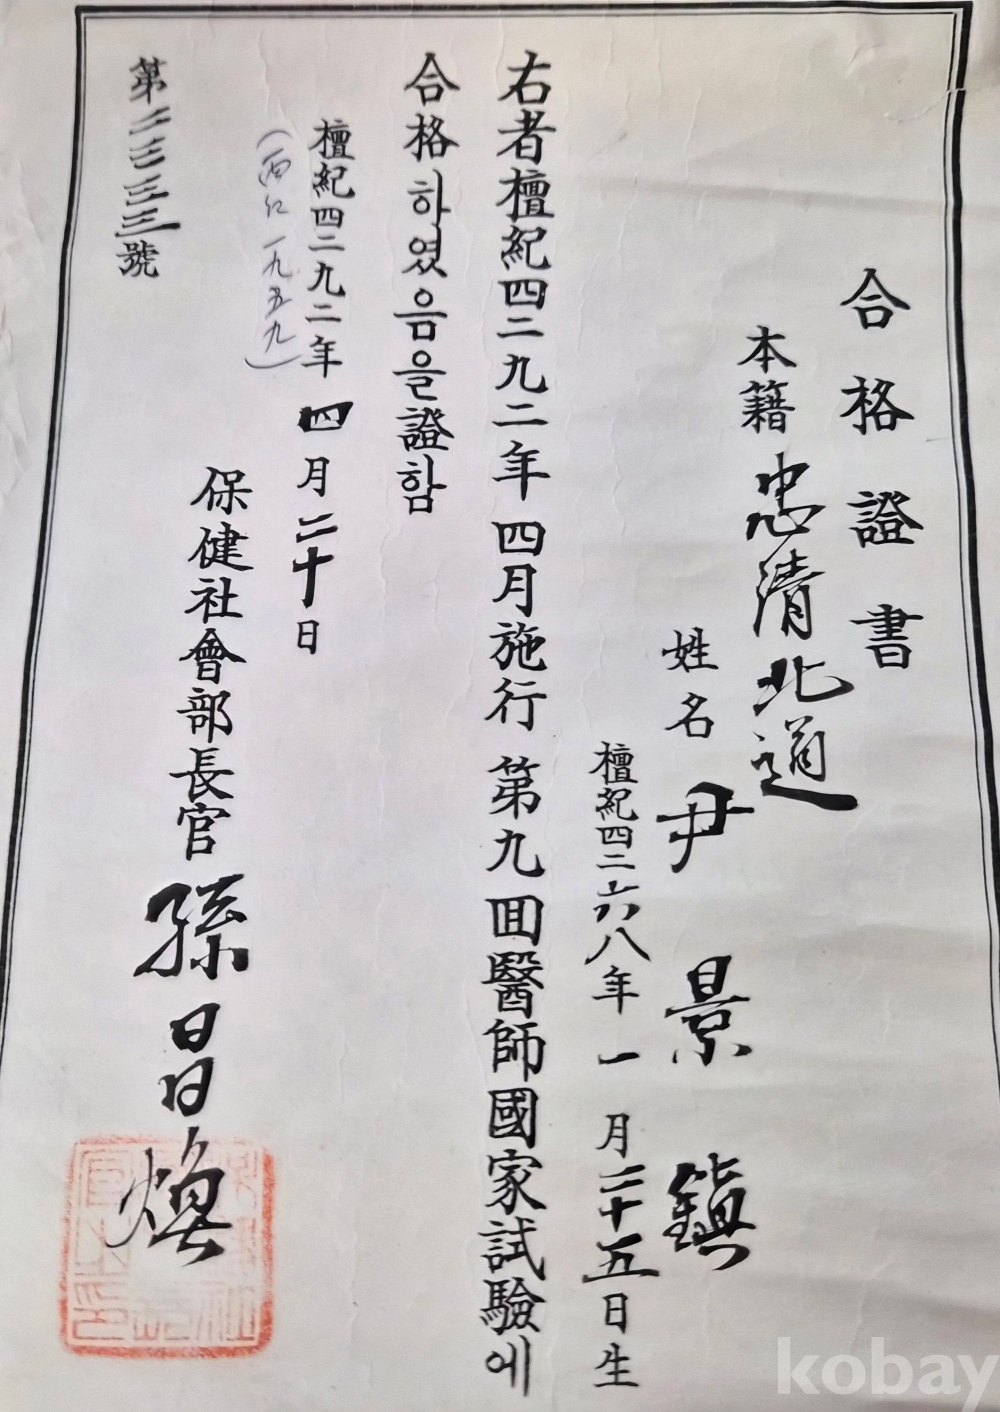 合格證書
本籍 忠清北道
姓名 尹景鎭
檀紀四二六八年 一月二十五日生
右者檀紀四二九二年四月施行第九回醫師國家試驗에
合格하였음을證함
檀紀四二九二年四月二十日
(西紀一九五九)
保健社會部長官 孫昌煥
第二三三三號
kobay